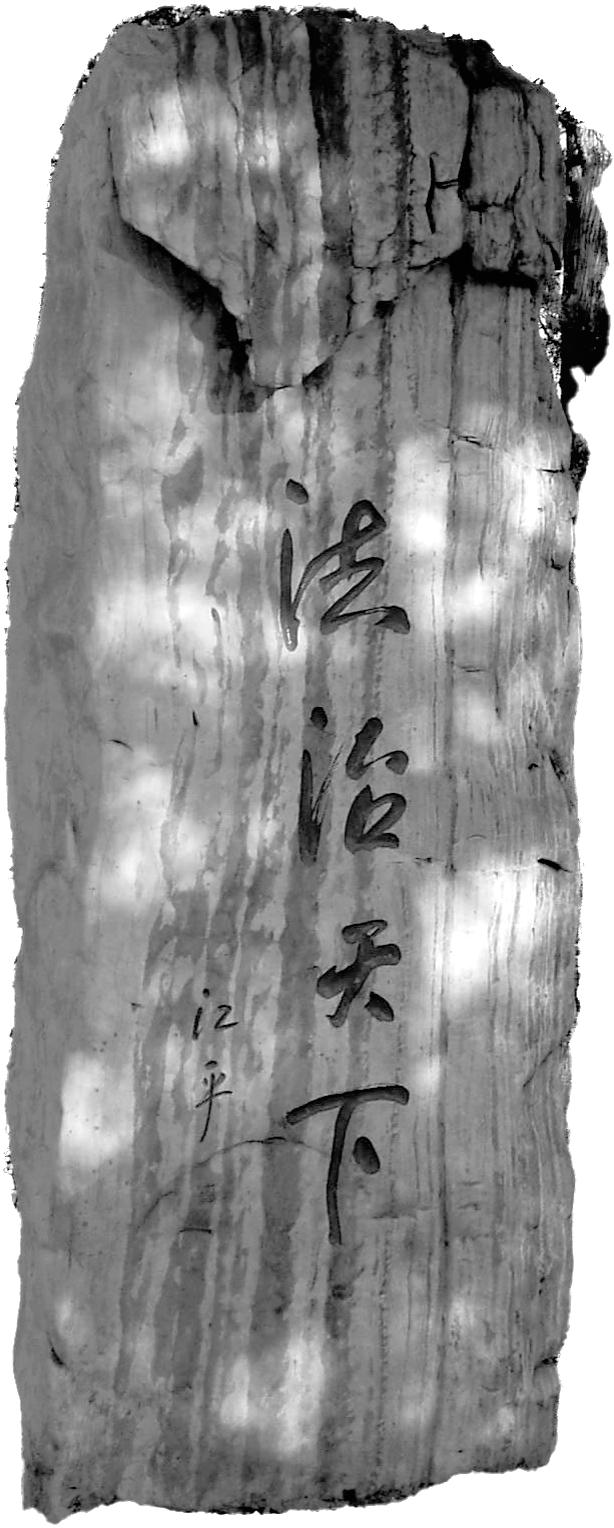 法治天下
江平